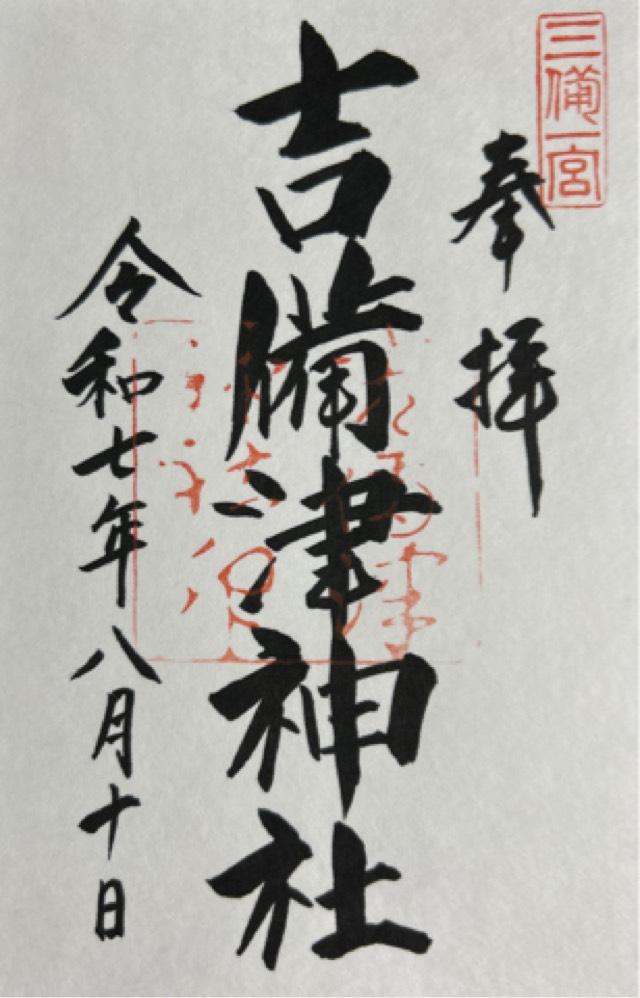 三備一宮
奉拝
吉備津神社
令和七年八月十日